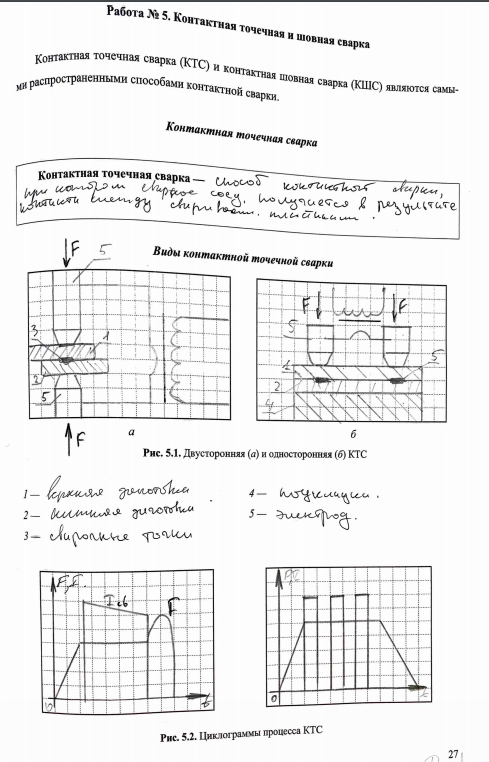 Работа № 5. Контактная точечная и шовная сварка
Контактная точечная сварка (КТС) и контактная шовная сварка (КШС) являются самы-
ми распространенными способами контактной сварки.
Контактная точечная сварка
Контактная точечная сварка — способ контактной сварки,
при котором сварное соед. получается в результате
контакта между свариваем. пластинами.
Виды контактной точечной сварки
F 5
3 1
2
5
F
F F
5
1 5
2
4
а б
Рис. 5.1. Двусторонняя (а) и односторонняя (б) КТС
1 – верхняя заготовка 4 – подкладки.
2 – нижняя заготовка 5 – электрод.
3 – сварочные точки
F,I. F,I
Iсв F
0 t 0 t
Рис. 5.2. Циклограммы процесса КТС
27